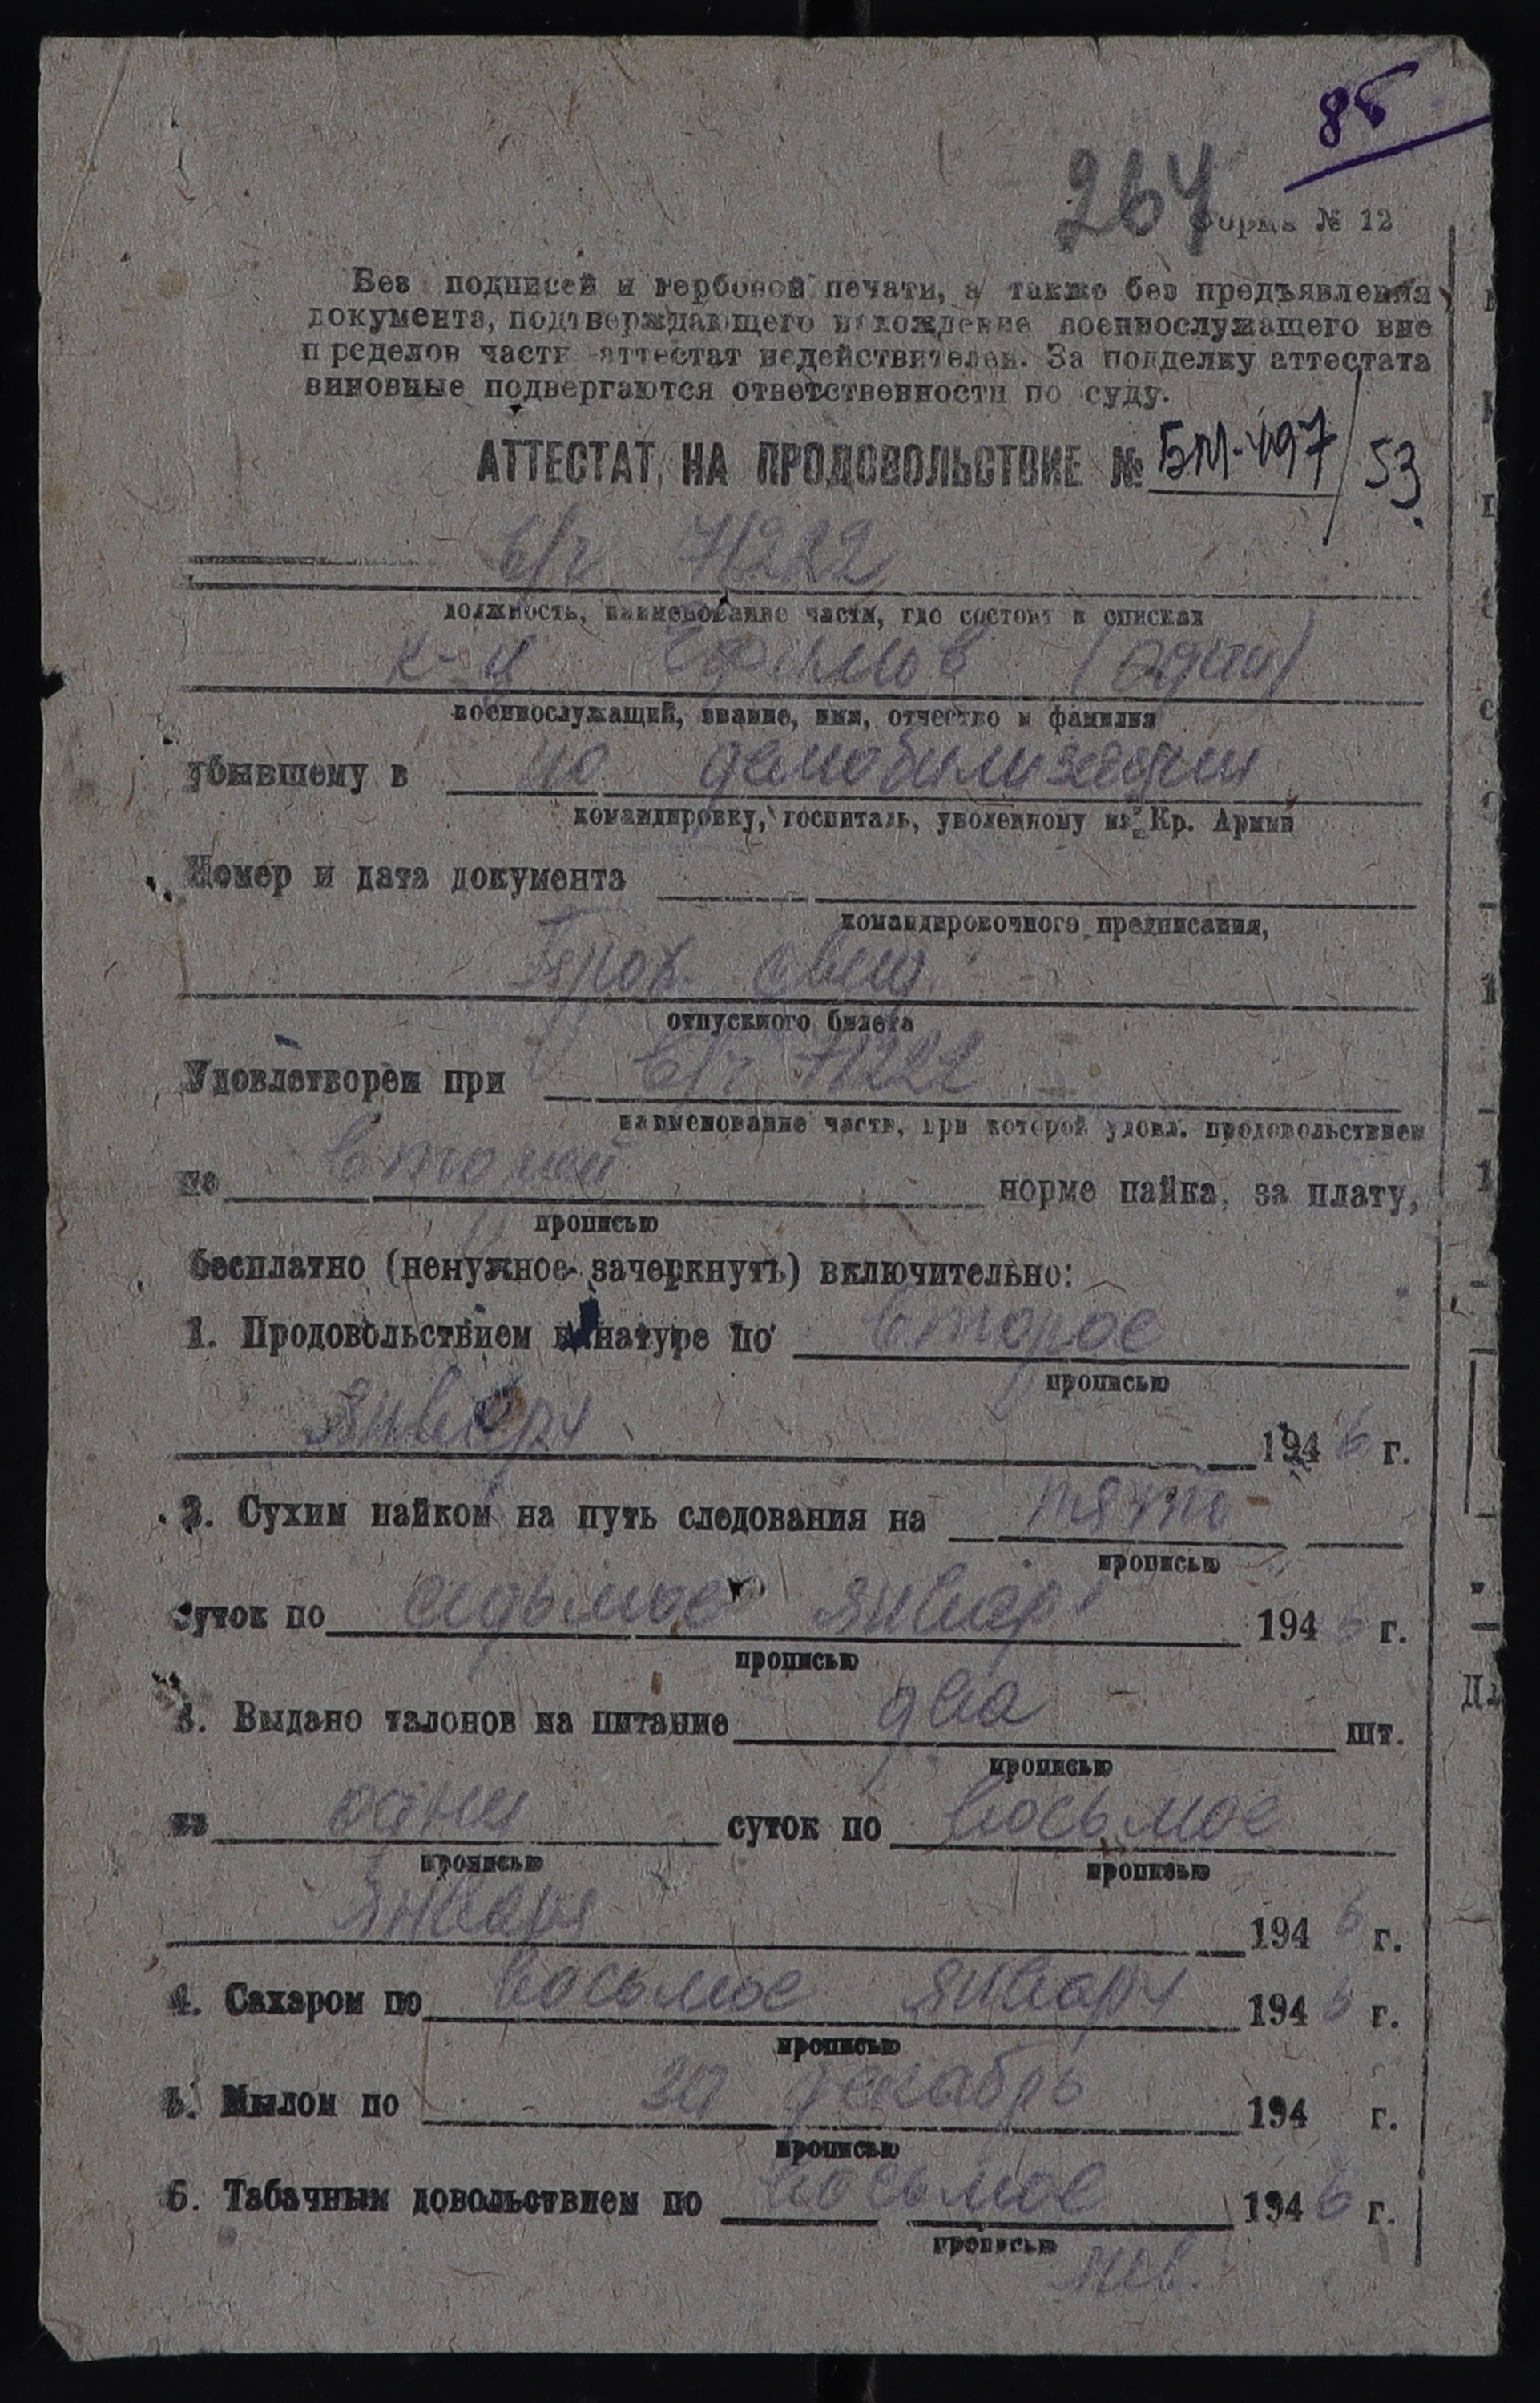 85
264
Форма № 12
Без подписей и гербовой печати, а также без предъявления
документа, подтверждающего нахождение военнослужащего вне
пределов части аттестат недействителен. За подделку аттестата
виновные подвергаются ответственности по суду.
АТТЕСТАТ НА ПРОДОВОЛЬСТВИЕ № БМ-497/53
в/ч 71222
должность, наименование части, где состоит в списках
к-ц Ефимов (один)
военнослужащий, звание, имя, отчество и фамилия
убывшему в по демобилизации
командировку, госпиталь, уволенному из Кр. Армии
Номер и дата документа
командировочного предписания,
отпускного билета
Удовлетворен при в/ч 71222
наименование части, при которой удовл. продовольствием
по второй норме пайка, за плату,
прописью
бесплатно (ненужное зачеркнуть) включительно:
1. Продовольствием в натуре по второе
прописью
января 1946 г.
2. Сухим пайком на путь следования на пять
прописью
суток по седьмое января 1946 г.
прописью
3. Выдано талонов на питание два шт.
прописью
на одни суток по восьмое
прописью прописью
января 1946 г.
4. Сахаром по восьмое января 1946 г.
прописью
5. Мылом по 30 декабрь 194 г.
прописью
6. Табачным довольствием по восьмое 1946 г.
прописью
янв.